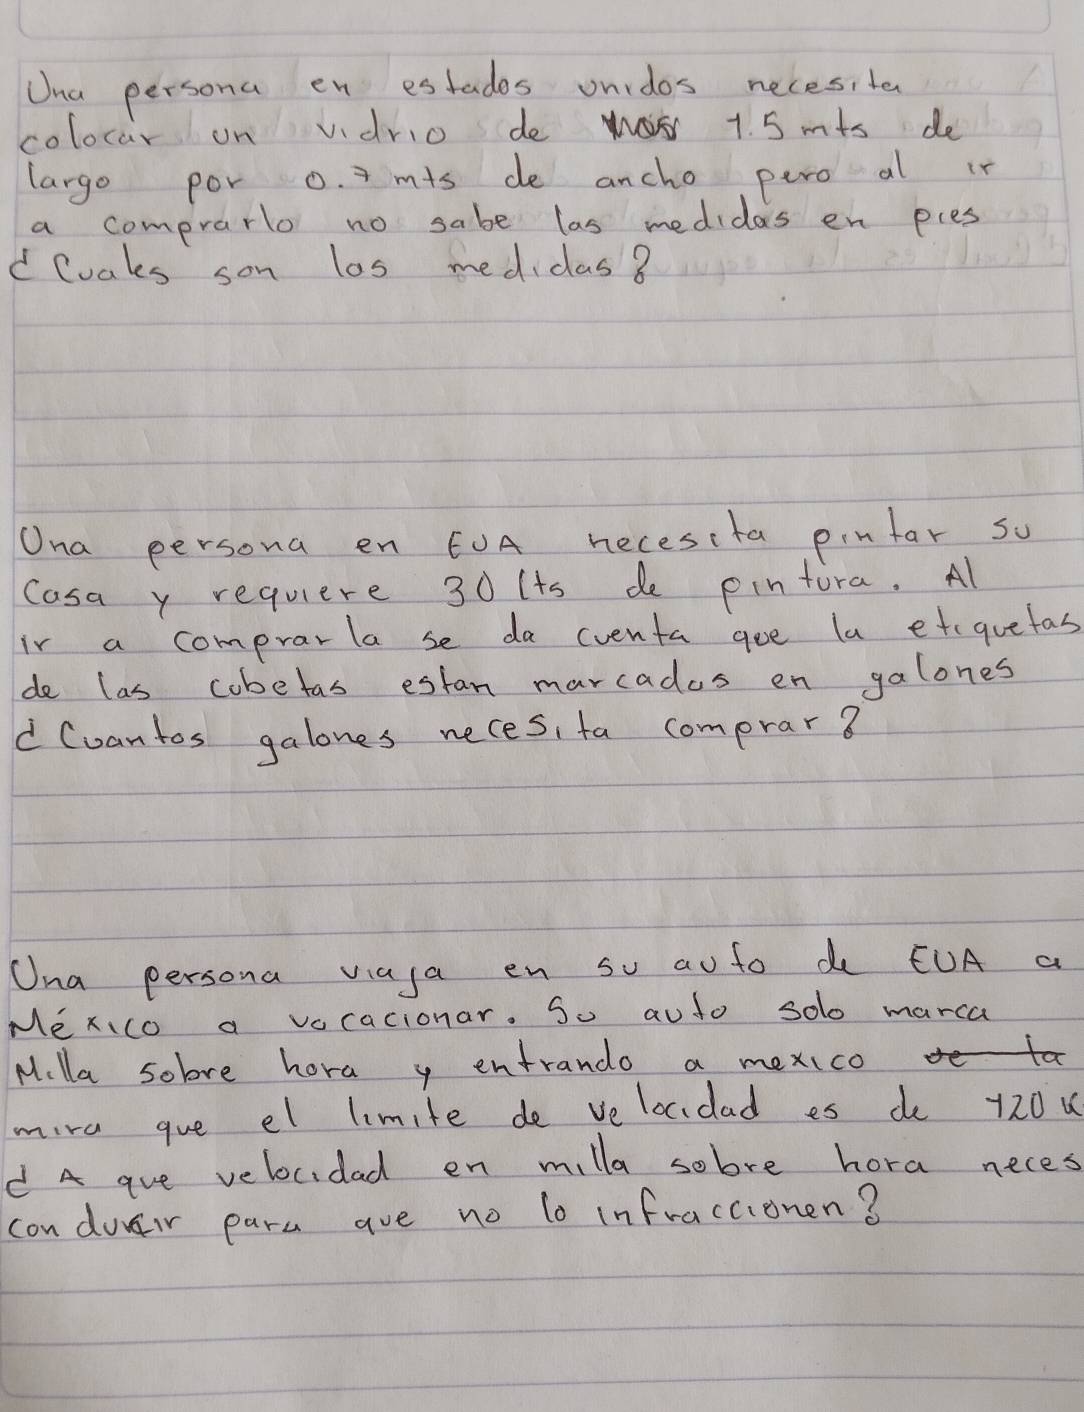 Una persona en estados unidos necesita
colocar un vidrio de 1.5 mts de
largo por 0.7 mts de ancho pero al ir
a comprarlo no sabe las medidas en pies
¿Cuales son las medidas?
Una persona en EUA necesita pintar su
Casa y requiere 30 lts de pintura. Al
ir a comprarla se da cuenta que la etiquetas
de las cubetas estan marcados en galones
¿Cuantos galones necesita comprar?
Una persona viaja en su auto de EUA a
México a vacacionar. Su auto solo marca
Milla sobre hora y entrando a mexico
mira que el limite de velocidad es de 120 K
¿A que velocidad en milla sobre hora neces
conducir para que no lo infraccionen?